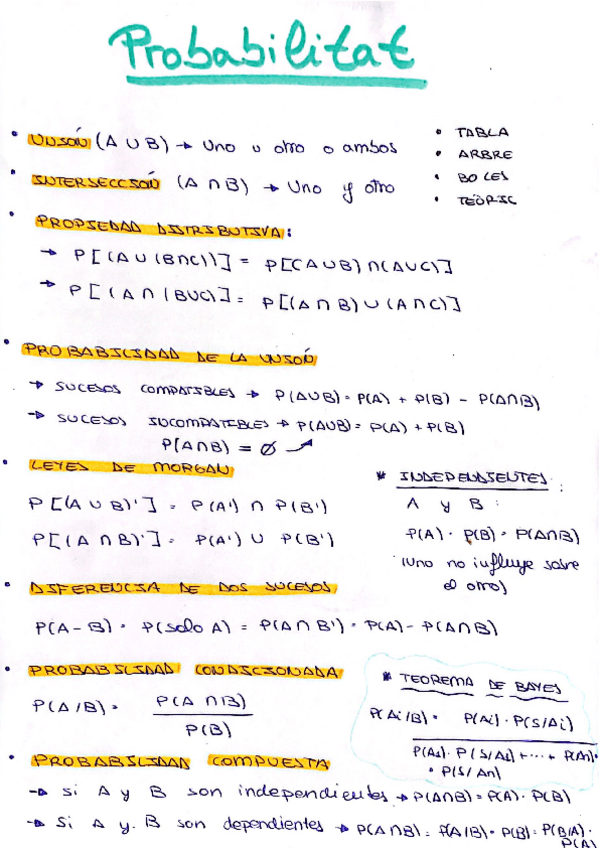 Probabilitat
• UNIÓN (A ∪ B) → Uno u otro o ambos
• INTERSECCIÓN (A ∩ B) → Uno y otro
• TABLA
• ARBRE
• BOLES
• TEÒRIC
• PROPIEDAD DISTRIBUTIVA:
→ P[(A ∪ (B∩C))] = P[(A∪B) ∩ (A∪C)]
→ P[(A ∩ (B∪C)] = P[(A ∩ B) ∪ (A ∩ C)]
• PROBABILIDAD DE LA UNIÓN
→ SUCESOS COMPATIBLES → P(A∪B) = P(A) + P(B) - P(A∩B)
→ SUCESOS INCOMPATIBLES → P(A∪B) = P(A) + P(B)
P(A∩B) = ∅
• LEYES DE MORGAN
P[(A ∪ B)'] = P(A') ∩ P(B')
P[(A ∩ B)'] = P(A') ∪ P(B')
* INDEPENDIENTES:
A y B:
P(A) · P(B) = P(A∩B)
(uno no influye sobre
el otro)
• DIFERENCIA DE DOS SUCESOS
P(A - B) = P(solo A) = P(A ∩ B') = P(A) - P(A∩B)
• PROBABILIDAD CONDICIONADA
P(A/B) = P(A ∩ B)
P(B)
* TEOREMA DE BAYES
P(Ai/B) = P(Ai) · P(S/Ai)
P(A1) · P(S/A1) + ··· + P(An) ·
· P(S/An)
• PROBABILIDAD COMPUESTA
→ Si A y B son independientes → P(A∩B) = P(A) · P(B)
→ Si A y B son dependientes → P(A∩B) = P(A/B) · P(B) = P(B/A) ·
P(A)